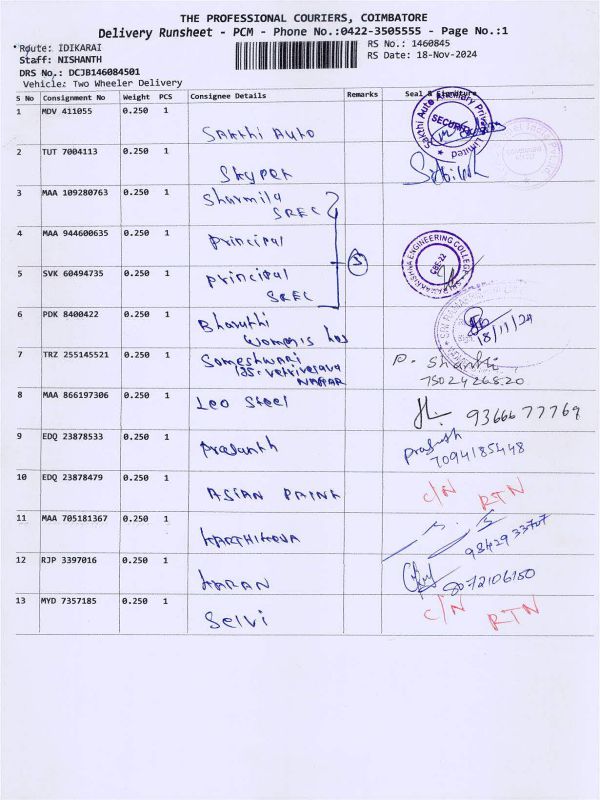 THE PROFESSIONAL COURIERS, COIMBATORE
Delivery Runsheet - PCM - Phone No.:0422-3505555 - Page No.:1
Route: IDIKARAI
RS No.: 1460845
Staff: NISHANTH
RS Date: 18-Nov-2024
DRS No.: DCJB146084501
Vehicle: Two Wheeler Delivery
S No Consignment No Weight PCS Consignee Details Remarks Seal & Signature
1 MDV 411055 0.250 1
Sakthi Auto
Sakthi Auto Ancillary Private Limited
SECURITY
2 TUT 7004113 0.250 1
Skyper
3 MAA 109280763 0.250 1 Sharmila
SREC
4 MAA 944600635 0.250 1 principal
3
SRI RAMAKRISHNA ENGINEERING COLLEGE
CBE-22
5 SVK 60494735 0.250 1 principal
SREC
6 PDK 8400422 0.250 1 Bharathi
Women's hos
18/11/24
7 TRZ 255145521 0.250 1 Someshwari
NAGAR
P. Shanthi
7502426820
8 MAA 866197306 0.250 1 Leo Steel
9366677769
9 EDQ 23878533 0.250 1 Prasanth
Prasath
7094185448
10 EDQ 23878479 0.250 1
ASIAN PAINT
C/N RTN
11 MAA 705181367 0.250 1
KARTHIKEYA
98429 33707
12 RJP 3397016 0.250 1
KARAN
8072106150
13 MYD 7357185 0.250 1
Selvi
C/N RTN